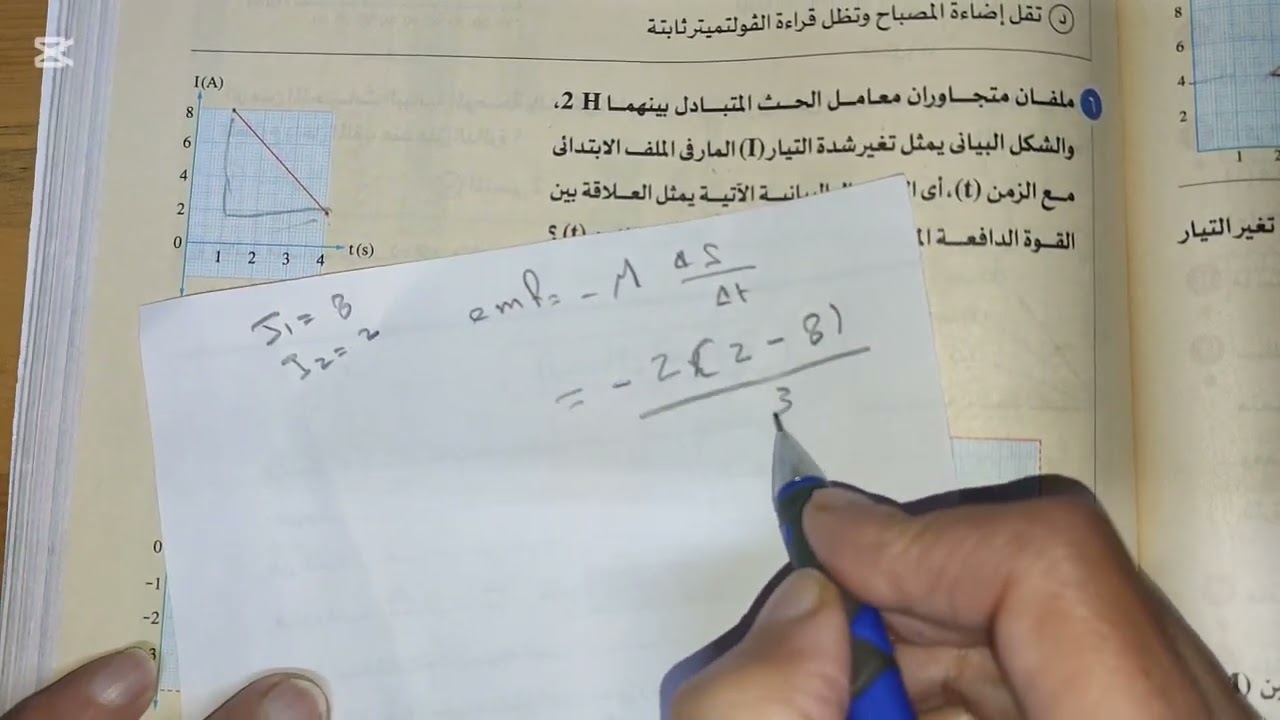 د تقل إضاءة المصباح وتظل قراءة الڤولتميتر ثابتة
٦ ملفان متجاوران معامل الحث المتبادل بينهما 2 H،
والشكل البيانى يمثل تغير شدة التيار (I) المار فى الملف الابتدائى
مع الزمن (t)، أى البيانية الآتية يمثل العلاقة بين
القوة الدافعة (t) ؟
I (A)
8
6
4
2
0
1 2 3 4 t (s)
I₁ = 8
I₂ = 2
emf = - M ΔI / Δt
= - 2 (2 - 8) / 3
0
-1
-2
-3
8
6
4
2
1 2
تغير التيار